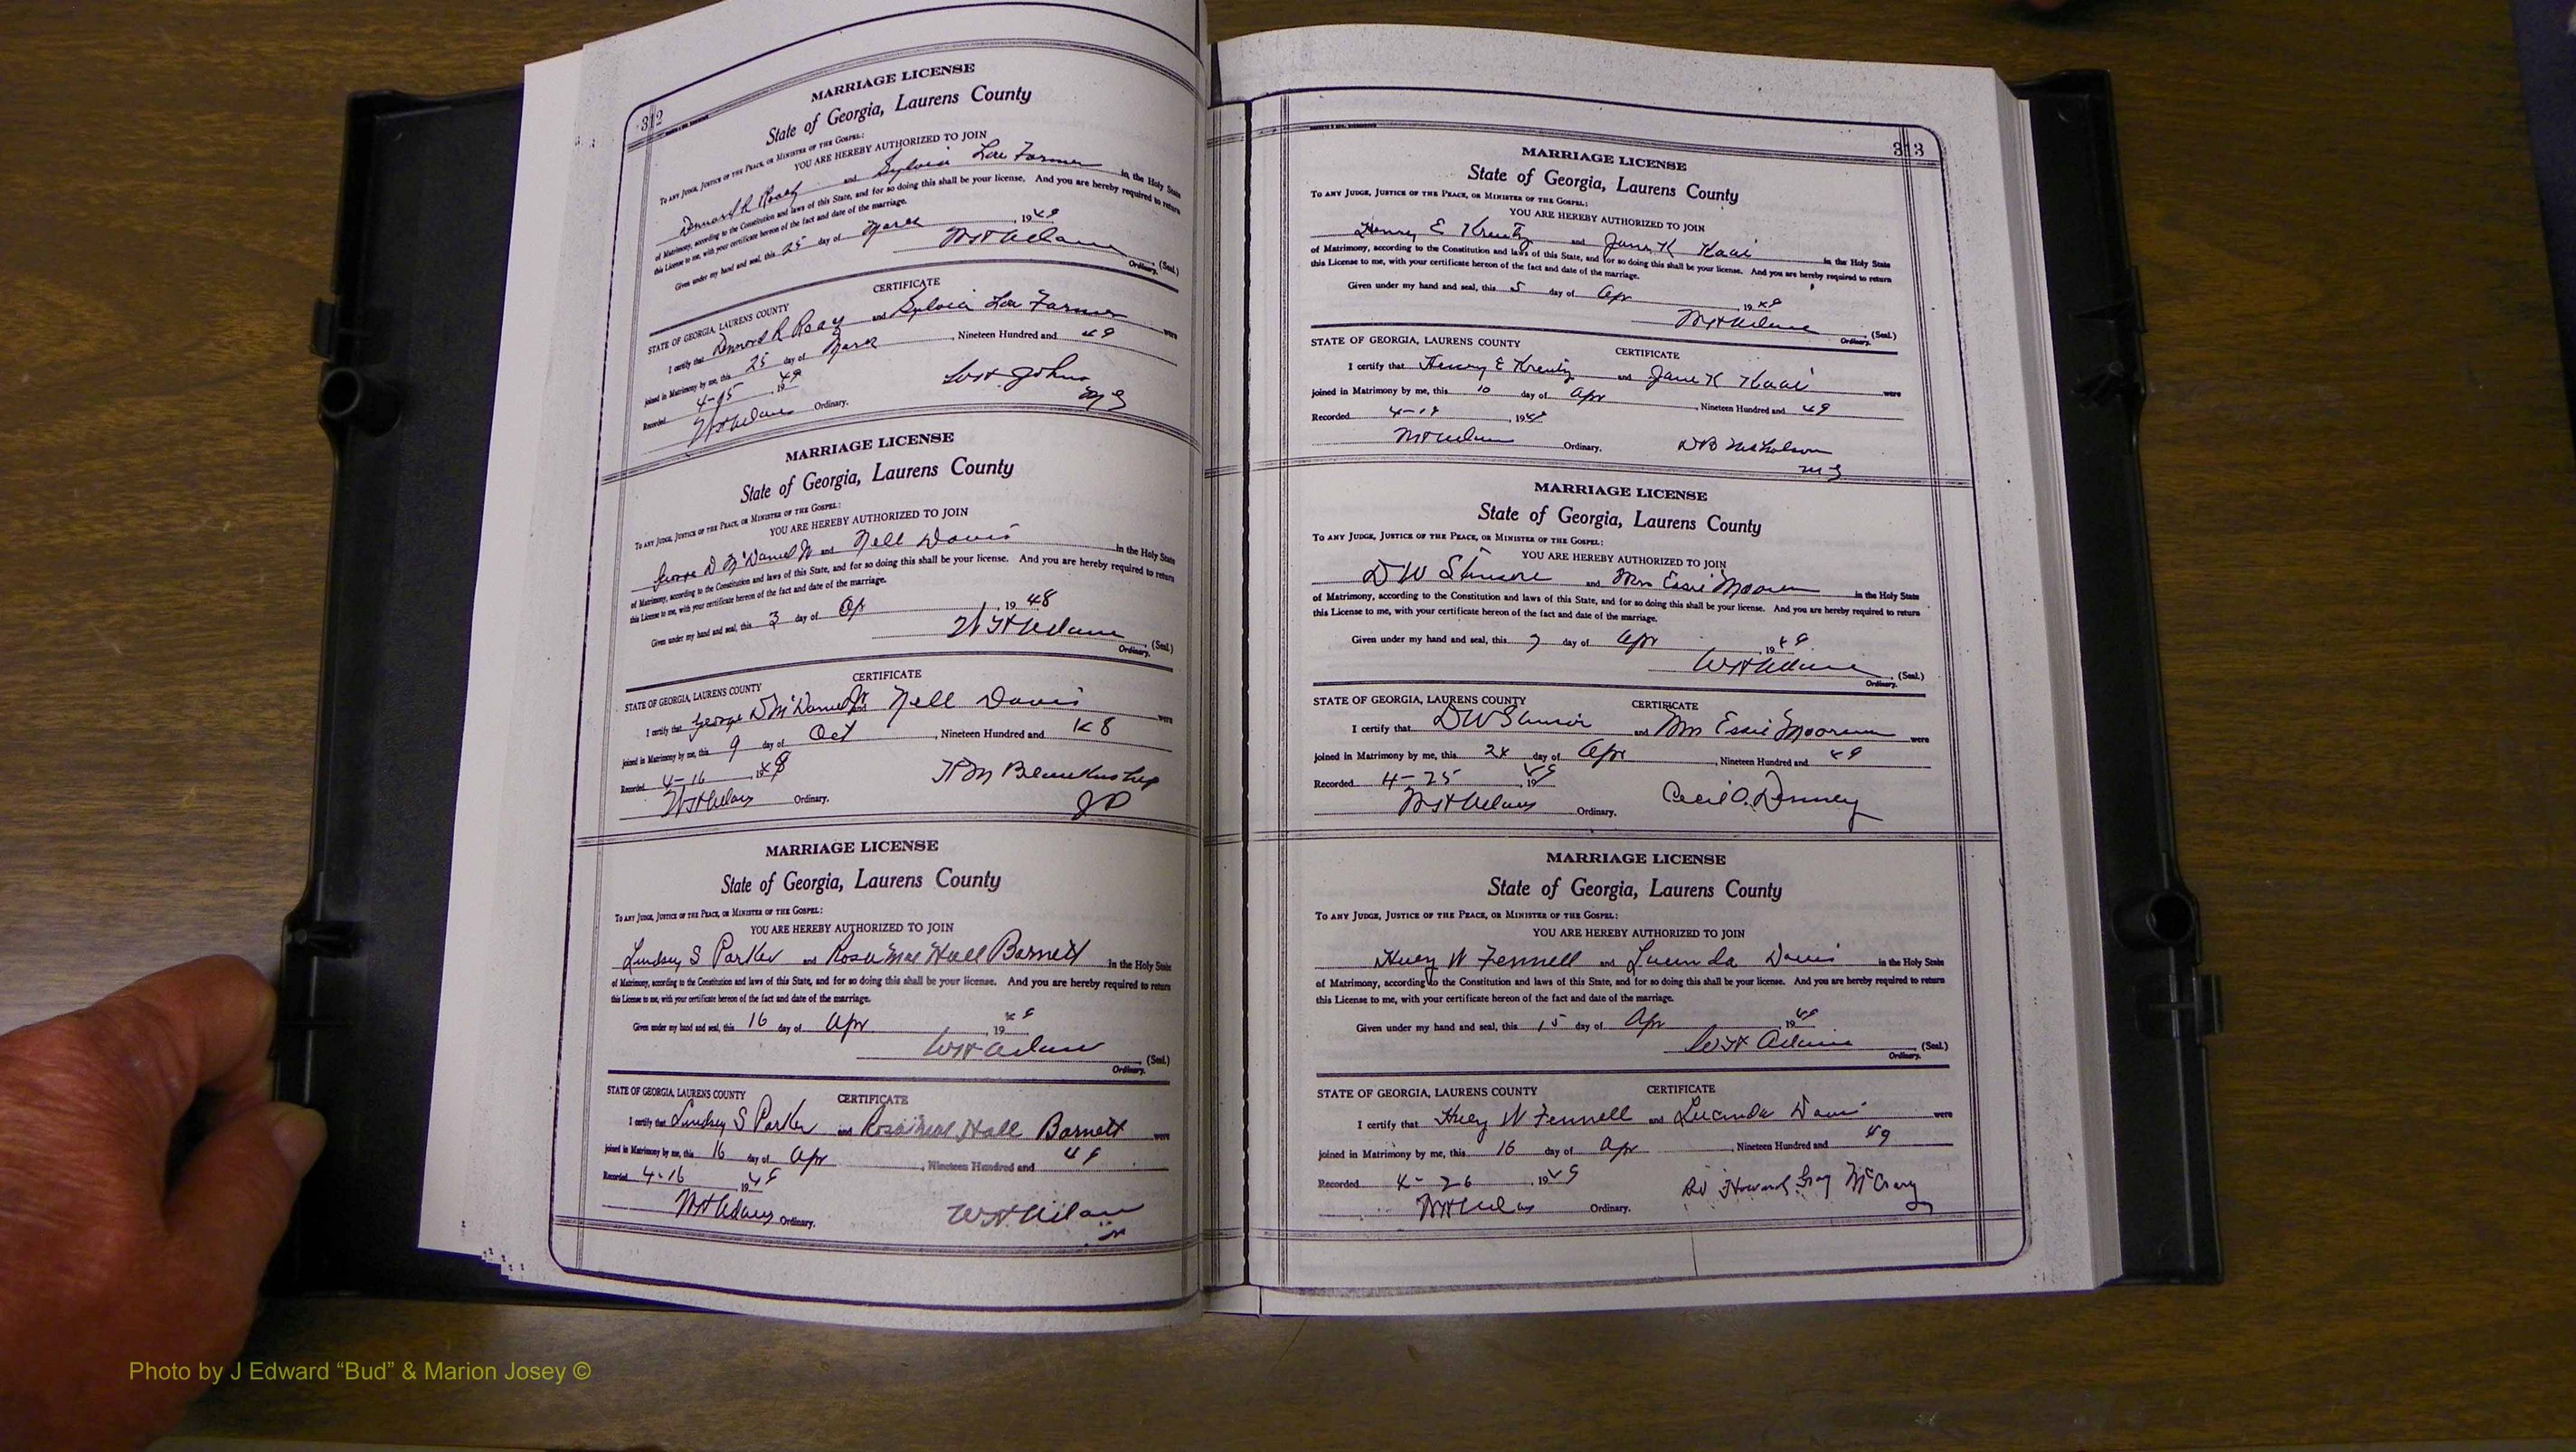 312
MARRIAGE LICENSE
State of Georgia, Laurens County
To ANY JUDGE, JUSTICE OF THE PEACE, OR MINISTER OF THE GOSPEL:
YOU ARE HEREBY AUTHORIZED TO JOIN
and Sylvia Lou Farmer in the Holy State
of Matrimony, according to the Constitution and laws of this State, and for so doing this shall be your license. And you are hereby required to return
this License to me, with your certificate hereon of the fact and date of the marriage.
Given under my hand and seal, this 25 day of March 1949
WH Adams (Seal.)
Ordinary.
STATE OF GEORGIA, LAURENS COUNTY CERTIFICATE
I certify that and Sylvia Lou Farmer were
joined in Matrimony by me, this 25 day of March, Nineteen Hundred and 49
Recorded 1949
WH Adams Ordinary.
MG
MARRIAGE LICENSE
State of Georgia, Laurens County
To ANY JUDGE, JUSTICE OF THE PEACE, OR MINISTER OF THE GOSPEL:
YOU ARE HEREBY AUTHORIZED TO JOIN
George D McDaniel Jr and Nell Davis in the Holy State
of Matrimony, according to the Constitution and laws of this State, and for so doing this shall be your license. And you are hereby required to return
this License to me, with your certificate hereon of the fact and date of the marriage.
Given under my hand and seal, this 3 day of 1948
WH Adams (Seal.)
Ordinary.
STATE OF GEORGIA, LAURENS COUNTY CERTIFICATE
I certify that George D McDaniel Jr and Nell Davis were
joined in Matrimony by me, this 9 day of Oct, Nineteen Hundred and 48
Recorded 4-16 19
WH Adams Ordinary. HM Blankenship
JP
MARRIAGE LICENSE
State of Georgia, Laurens County
To ANY JUDGE, JUSTICE OF THE PEACE, OR MINISTER OF THE GOSPEL:
YOU ARE HEREBY AUTHORIZED TO JOIN
Lindsey S Parker and Rosa Mae Hall Barnett in the Holy State
of Matrimony, according to the Constitution and laws of this State, and for so doing this shall be your license. And you are hereby required to return
this License to me, with your certificate hereon of the fact and date of the marriage.
Given under my hand and seal, this 16 day of Apr 1949
WH Adams (Seal.)
Ordinary.
STATE OF GEORGIA, LAURENS COUNTY CERTIFICATE
I certify that Lindsey S Parker and Rosa Mae Hall Barnett were
joined in Matrimony by me, this 16 day of Apr, Nineteen Hundred and 49
Recorded 4-16 1949
WH Adams Ordinary. WH Adams
313
MARRIAGE LICENSE
State of Georgia, Laurens County
To ANY JUDGE, JUSTICE OF THE PEACE, OR MINISTER OF THE GOSPEL:
YOU ARE HEREBY AUTHORIZED TO JOIN
Henry E Kreutz and Jane K Kaai in the Holy State
of Matrimony, according to the Constitution and laws of this State, and for so doing this shall be your license. And you are hereby required to return
this License to me, with your certificate hereon of the fact and date of the marriage.
Given under my hand and seal, this 5 day of Apr 1949
WH Adams (Seal.)
Ordinary.
STATE OF GEORGIA, LAURENS COUNTY CERTIFICATE
I certify that Henry E Kreutz and Jane K Kaai were
joined in Matrimony by me, this 10 day of Apr, Nineteen Hundred and 49
Recorded 4-19 1949
WH Adams Ordinary. DB Nicholson
MG
MARRIAGE LICENSE
State of Georgia, Laurens County
To ANY JUDGE, JUSTICE OF THE PEACE, OR MINISTER OF THE GOSPEL:
YOU ARE HEREBY AUTHORIZED TO JOIN
D W and Mrs Essie in the Holy State
of Matrimony, according to the Constitution and laws of this State, and for so doing this shall be your license. And you are hereby required to return
this License to me, with your certificate hereon of the fact and date of the marriage.
Given under my hand and seal, this 7 day of Apr 1949
WH Adams (Seal.)
Ordinary.
STATE OF GEORGIA, LAURENS COUNTY CERTIFICATE
I certify that D W and Mrs Essie were
joined in Matrimony by me, this 24 day of Apr, Nineteen Hundred and 49
Recorded 4-25 1949
WH Adams Ordinary. Cecil O.
MARRIAGE LICENSE
State of Georgia, Laurens County
To ANY JUDGE, JUSTICE OF THE PEACE, OR MINISTER OF THE GOSPEL:
YOU ARE HEREBY AUTHORIZED TO JOIN
Huey W Fennell and Lucinda Davis in the Holy State
of Matrimony, according to the Constitution and laws of this State, and for so doing this shall be your license. And you are hereby required to return
this License to me, with your certificate hereon of the fact and date of the marriage.
Given under my hand and seal, this 15 day of Apr 1949
WH Adams (Seal.)
Ordinary.
STATE OF GEORGIA, LAURENS COUNTY CERTIFICATE
I certify that Huey W Fennell and Lucinda Davis were
joined in Matrimony by me, this 16 day of Apr, Nineteen Hundred and 49
Recorded 4-26 1949
WH Adams Ordinary. Howard Gray McCrary
Photo by J Edward “Bud” & Marion Josey ©